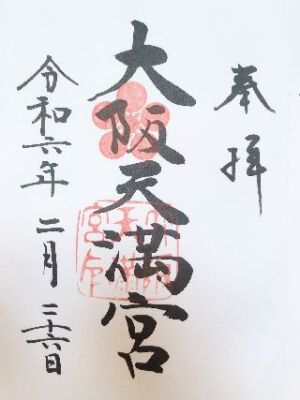 奉拝
大阪天満宮
令和六年二月二十六日